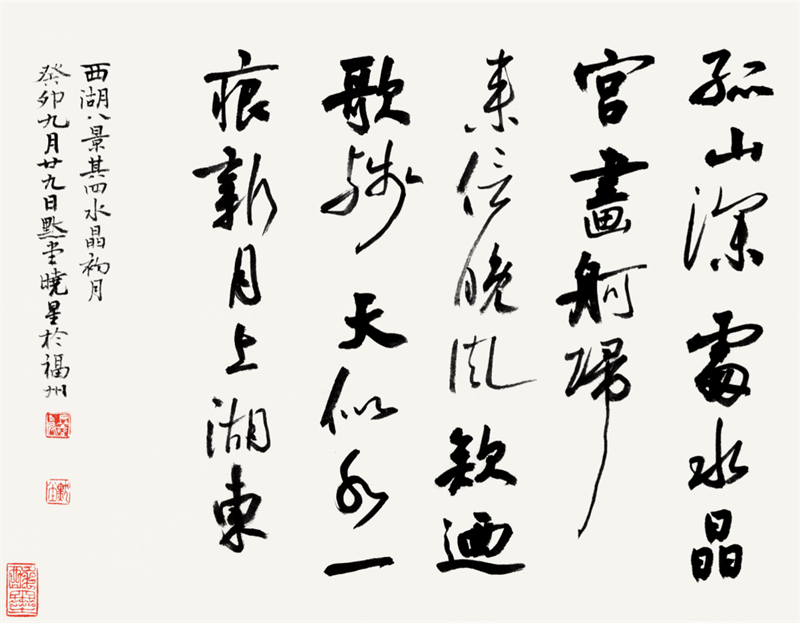 孤山深處水晶
宮畫舸歸
来信晚風欸迺
歌殘天似水一
痕新月上湖東
西湖八景其四水晶初月
癸卯九月廿九日堂曉星於福州